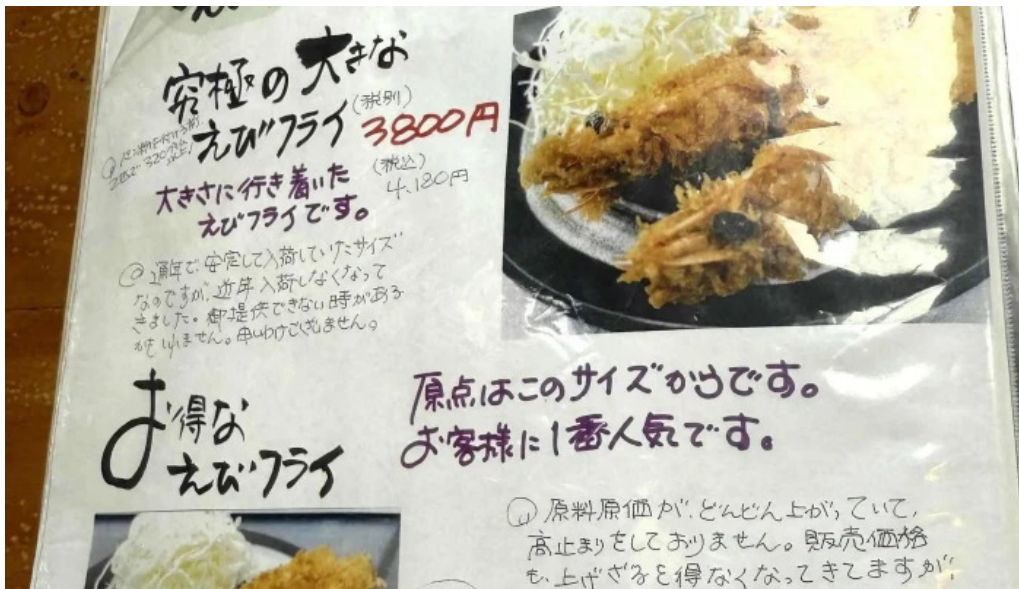 究極の大きな
えびフライ
(税別)
3800円
(税込)
4,180円
大きさに行き着いた
えびフライです。
通年で、安定して入荷していたサイズ
なのですが、近年入荷しなくなって
きました。御提供できない時がある
かもしれません。申しわけございません。
お得な
えびフライ
原点はこのサイズからです。
お客様に1番人気です。
原料原価が、どんどん上がっていて、
高止まりをしておりません。販売価格
も、上げざるを得なくなってきてますが、